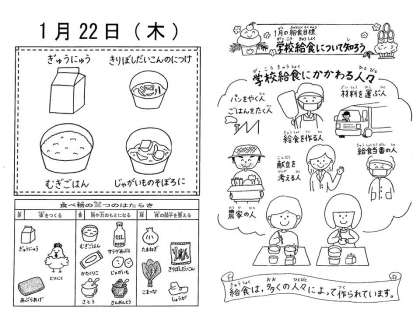 1月22日（木）
ぎゅうにゅう
きりぼしだいこんのにつけ
むぎごはん
じゃがいものそぼろに
食べ物の三つのはたらき
ぎゅうにゅう
とりにく
あぶらあげ
むぎごはん
サラダあぶら
かたくりこ
じゃがいも
さとう
さんおんとう
たまねぎ
きりぼしだいこん
こまつな
しょうが
1月の給食目標
学校給食について知ろう
学校給食にかかわる人々
パンをやく人
ごはんをたく人
給食を作る人
材料を運ぶ人
献立を
考える人
給食当番の人
農家の人
給食は、多くの人々によって作られています。